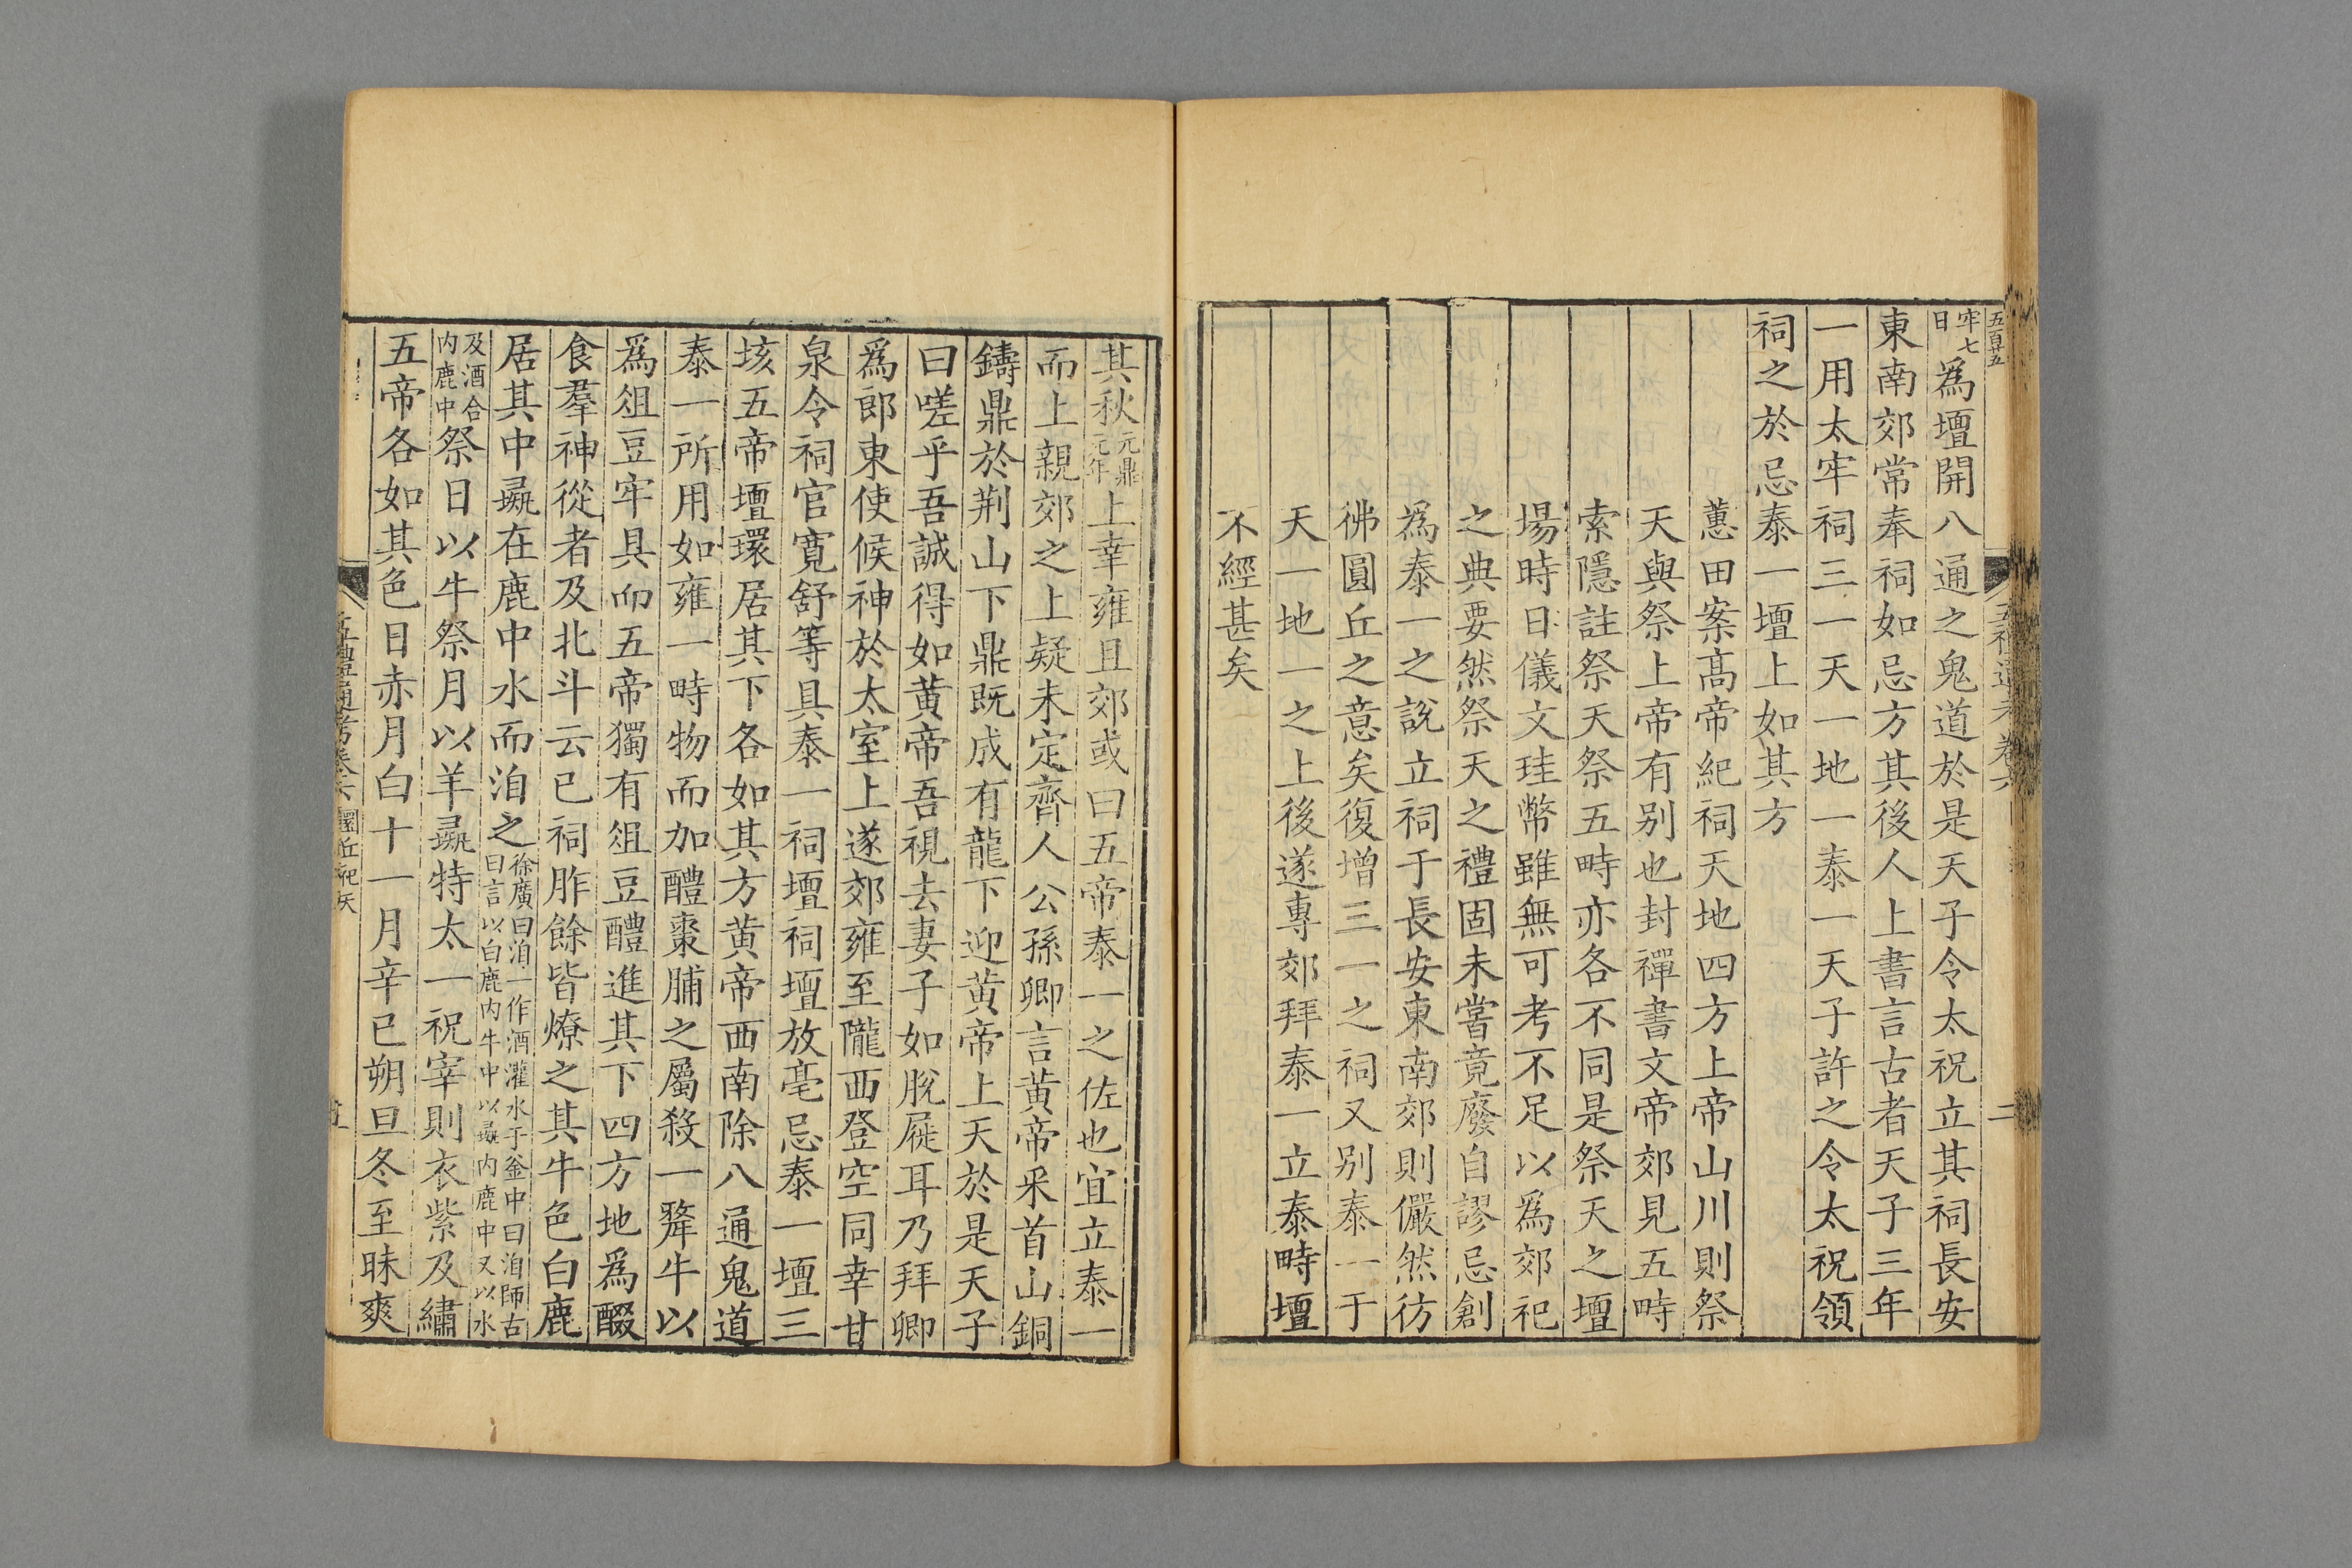 五百廿五
牢七
日
爲壇開八通之鬼道於是天子令太祝立其祠長安
東南郊常奉祠如忌方其後人上書言古者天子三年
一用太牢祠三一天一地一泰一天子許之令太祝領
祠之於忌泰一壇上如其方
蕙田案高帝紀祠天地四方上帝山川則祭
天與祭上帝有别也封禪書文帝郊見五畤
索隱註祭天祭五畤亦各不同是祭天之壇
場時日儀文珪幣雖無可考不足以爲郊祀
之典要然祭天之禮固未嘗竟廢自謬忌創
爲泰一之說立祠于長安東南郊則儼然彷
彿圓丘之意矣復增三一之祠又别泰一于
天一地一之上後遂專郊拜泰一立泰畤壇
不經甚矣
其秋元鼎元年上幸雍且郊或曰五帝泰一之佐也宜立泰一
而上親郊之上疑未定齊人公孫卿言黃帝采首山銅
鑄鼎於荆山下鼎既成有龍下迎黃帝上天於是天子
曰嗟乎吾誠得如黃帝吾視去妻子如脫屣耳乃拜卿
爲郎東使候神於太室上遂郊雍至隴西登空同幸甘
泉令祠官寬舒等具泰一祠壇祠壇放亳忌泰一壇三
垓五帝壇環居其下各如其方黃帝西南除八通鬼道
泰一所用如雍一畤物而加醴棗脯之屬殺一犛牛以
爲俎豆牢具而五帝獨有俎豆醴進其下四方地爲醊
食羣神從者及北斗云已祠胙餘皆燎之其牛色白鹿
居其中彘在鹿中水而洎之徐廣曰洎一作酒灌水于釜中曰洎師古
曰言以白鹿内牛中以彘内鹿中又以水
及酒合
内鹿中
祭日以牛祭月以羊彘特太一祝宰則衣紫及繡
五帝各如其色日赤月白十一月辛巳朔旦冬至昧爽
五禮通考卷六 圜丘祀天